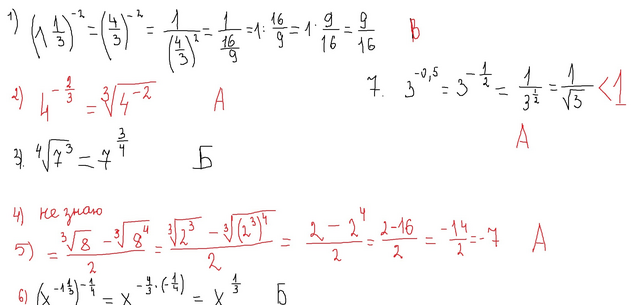 1) (1 1/3)^-2 = (4/3)^-2 = 1/(4/3)^2 = 1/(16/9) = 1 : 16/9 = 1 · 9/16 = 9/16 В
2) 4^(-2/3) = ∛(4^-2) А
7. 3^-0,5 = 3^(-1/2) = 1/3^(1/2) = 1/√3 < 1
А
3). ∜(7^3) = 7^(3/4) Б
4) не знаю
5) = (∛8 - ∛(8^4))/2 = (∛(2^3) - ∛((2^3)^4))/2 = (2 - 2^4)/2 = (2-16)/2 = -14/2 = -7 А
6) (x^(-1 1/3))^(-1/4) = x^(-4/3 · (-1/4)) = x^(1/3) Б